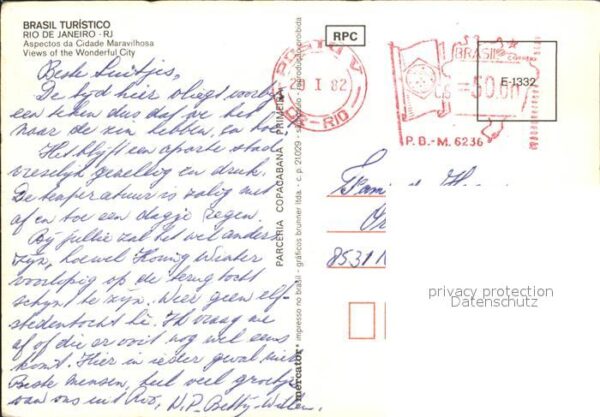 BRASIL TURÍSTICO
RIO DE JANEIRO - RJ
Aspectos da Cidade Maravilhosa
Views of the Wonderful City
Beste
De tijd hier vliegt voorbij
een teken dus dat we het
naar de zin hebben, en hoe
Het blijft een aparte stad
vreselijk gezellig en druk.
De temperatuur is zalig met
af en toe een dagje regen.
Bij jullie zal het wel anders
zijn, hoewel Koning Winter
voorlopig op de terugtocht
schijnt te zijn. Weer geen elf-
stedentocht hè. Ik vraag me
af of die er ooit nog wel eens
komt. Hier in ieder geval niet
Beste mensen, heel veel groetjes
van ons uit Rio, N.P. Betty-Willem.
PARCERIA COPACABANA - PRIMEIRA
mercator® impresso no brasil - gráficos brunner ltda. - c. p. 21029 - são paulo - reprodução proibida
RPC
POSTO V
20 I 82
DR-RIO
BRASIL
CORREIO
=50,00
P.B.-M. 6236
E-1332
Fam.
8531
privacy protection
Datenschutz